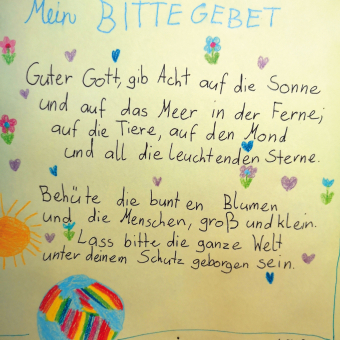 Mein BITTEGEBET
Guter Gott, gib Acht auf die Sonne
und auf das Meer in der Ferne;
auf die Tiere, auf den Mond
und all die leuchtenden Sterne.
Behüte die bunten Blumen
und die Menschen, groß und klein.
Lass bitte die ganze Welt
unter deinem Schutz geborgen sein.